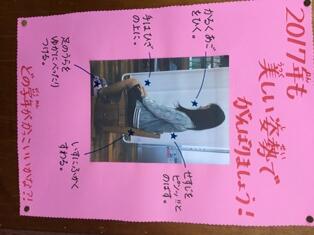 2017年も
美しい姿勢で
がんばりましょう!
かるくあご
をひく。
手はひざ
の上に。
足のうらを
ゆかにぺったり
つける。
せすじを
ピンッ!!と
のばす。
いすにふかく
すわる。
どの学年がかっこいいかな?!